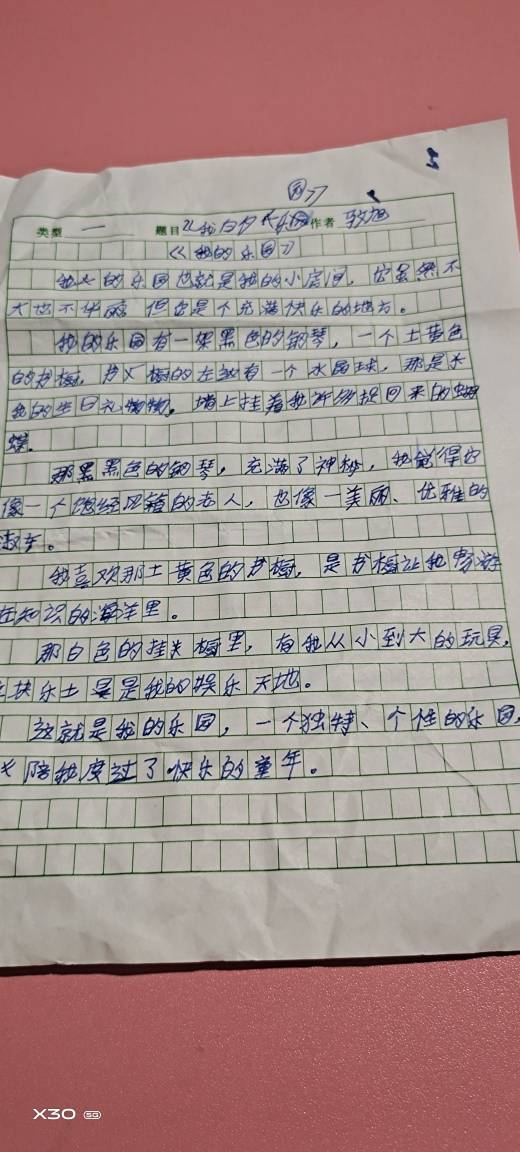 类型 一 题目《我的乐园》作者
《我的乐园》
我的乐园也就是我的小房间，它虽然不
大也不华丽，但它是个充满快乐的地方。
我的乐园有一架黑色的钢琴，一个土黄色
的书橱，书橱的左边有一个水晶球，那是
我的生日礼物，墙上挂着我捉回来的蝴
蝶。
那黑色的钢琴，充满了神秘，我觉得它
像一个饱经风霜的老人，也像一美丽、优雅的
淑女。
我喜欢那土黄色的书橱，是书橱让我畅游
在知识的海洋里。
那白色的挂橱里，有我从小到大的玩具，
这块乐土是我的娱乐天地。
这就是我的乐园，一个独特、个性的乐园，
陪我度过了快乐的童年。
X30 5G